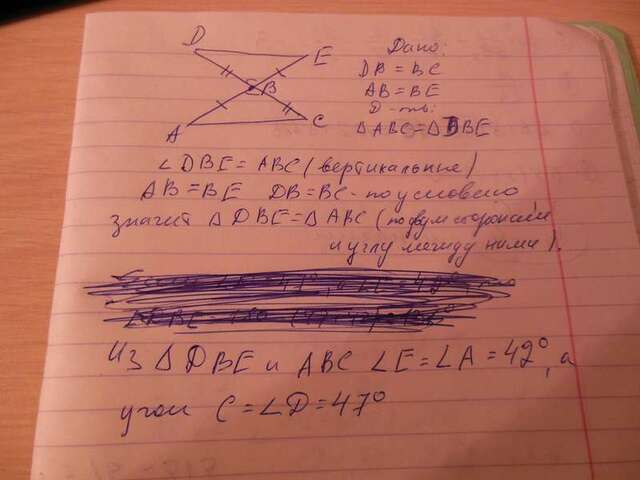 D
E
B
A
C
Дано:
DB = BC
AB = BE
Д-ть:
△ ABC = △ DBE
∠ DBE = ABC (вертикальные)
AB = BE DB = BC - по условию
значит △ DBE = △ ABC (по двум сторонам
и углу между ними).
Из △ DBE и ABC ∠E = ∠A = 42°, а
угол C = ∠D = 47°